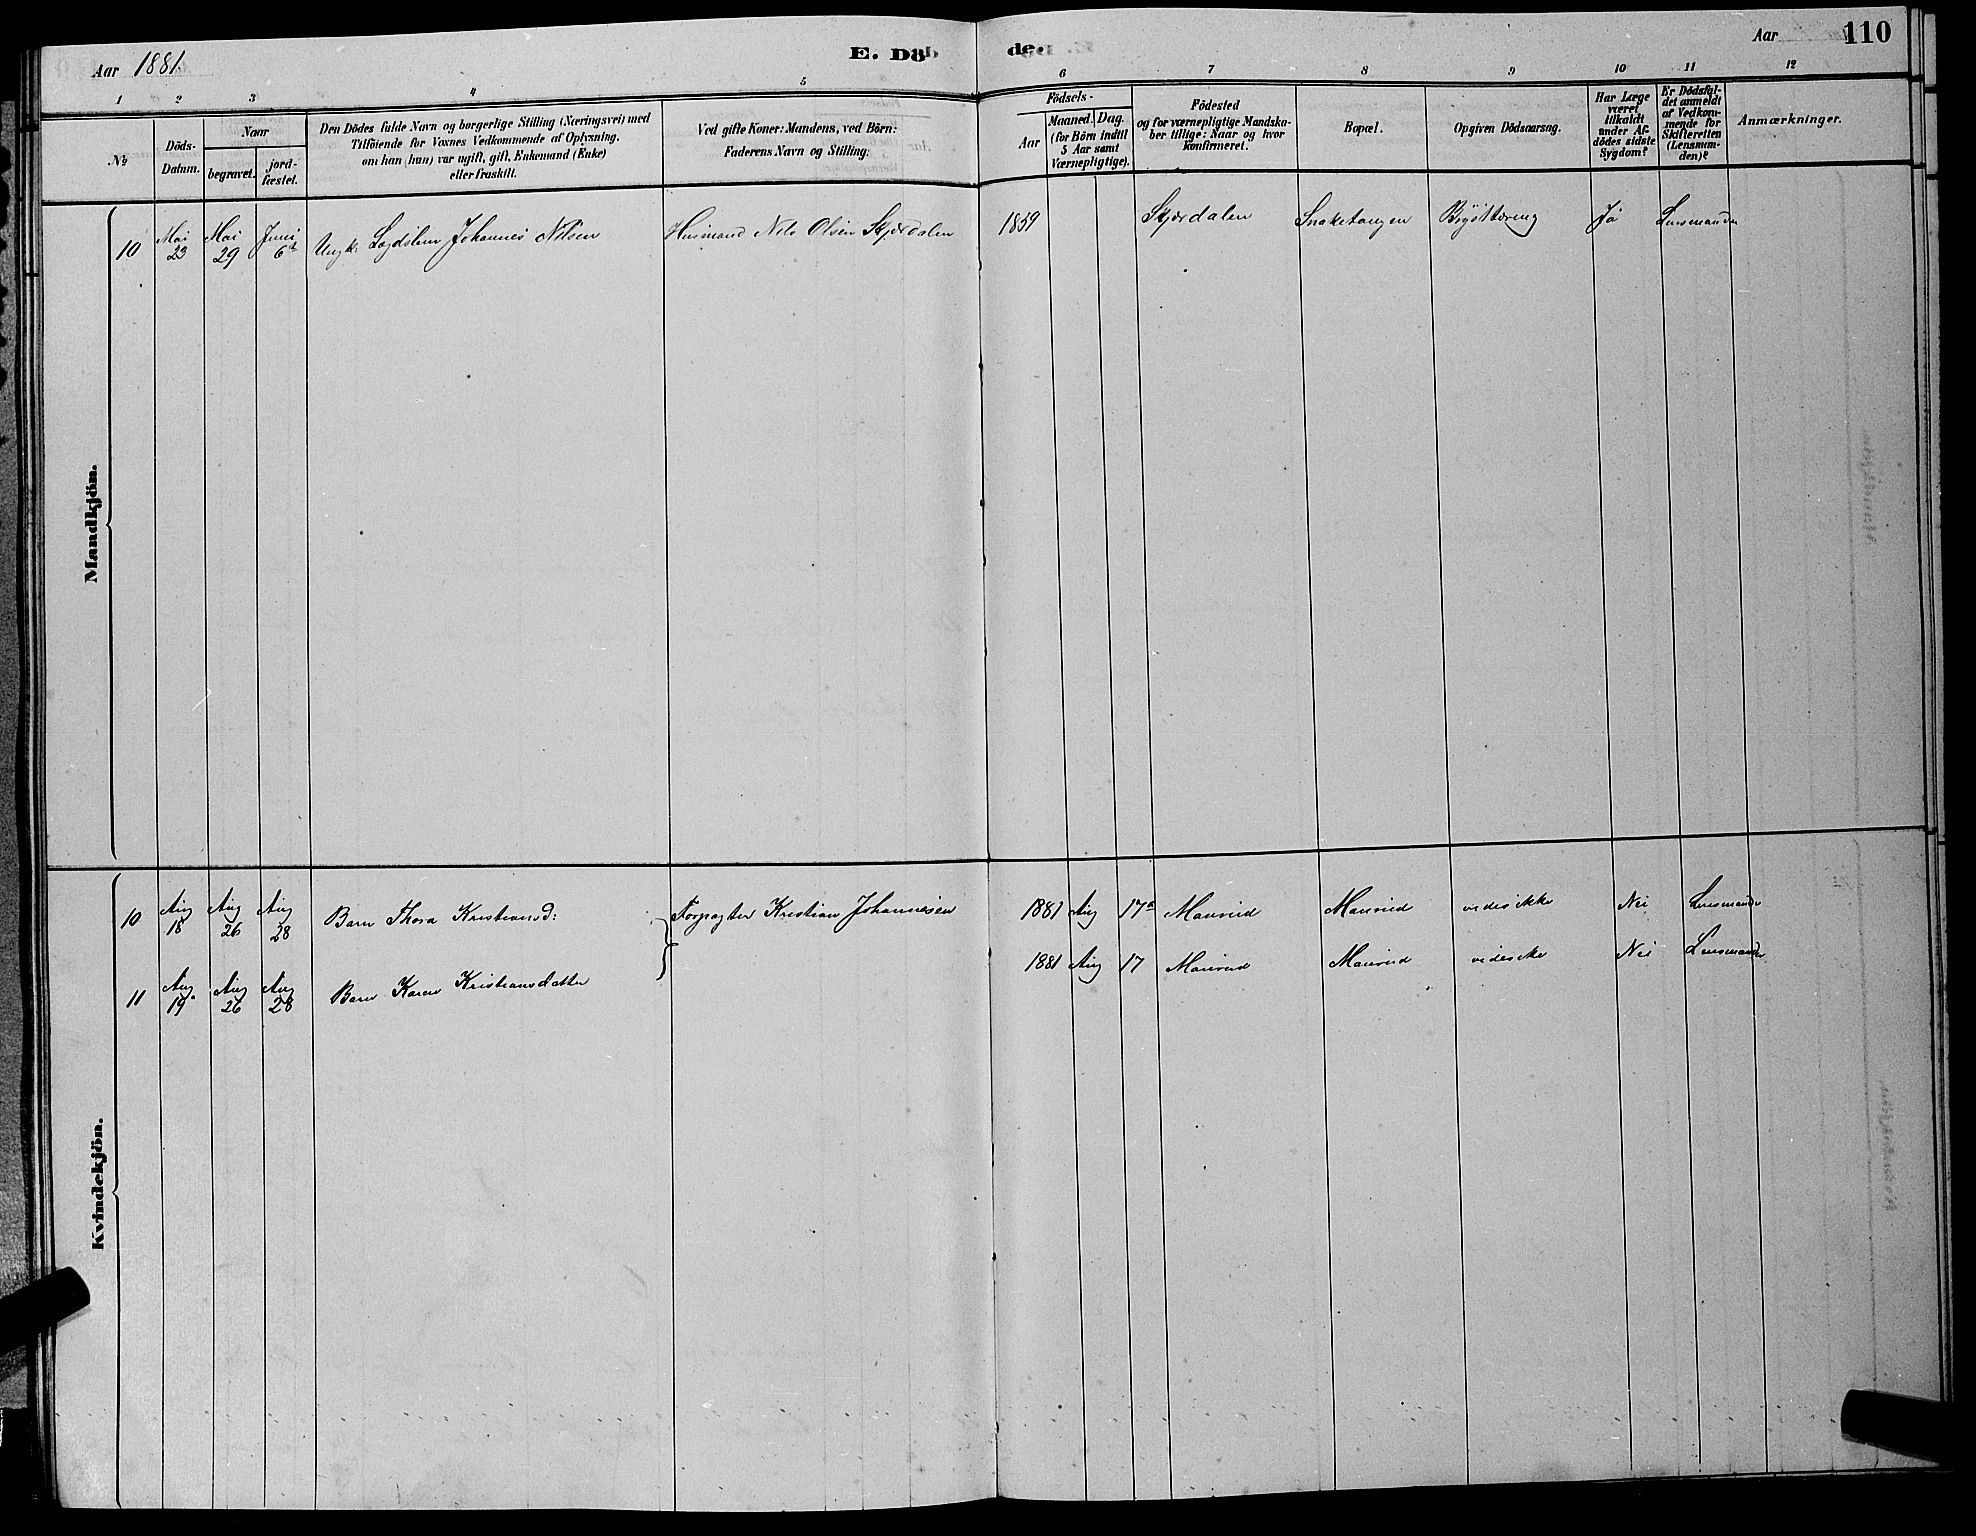 Aar 1881.
E. Döb
de.
Aar
110
1 2 3 4 5 6 7 8 9 10 11 12
No
Döds-
Datum.
Naar
begravet.
jord-
fæstet.
Den Dödes fulde Navn og borgerlige Stilling (Næringsvei) med
Tilföiende for Voxnes Vedkommende af Oplysning,
om han (hun) var ugift, gift, Enkemand (Enke)
eller fraskilt.
Ved gifte Koner: Mandens, ved Börn:
Faderens Navn og Stilling.
Födsels-
Aar
Maaned. Dag.
(for Börn indtil
5 Aar samt
Værnepligtige).
Födested
og for værnepligtige Mandska-
ber tillige: Naar og hvor
konfirmeret.
Bopæl.
Opgiven Dödsaarsag.
Har Læge
været
tilkaldt
under Af-
dödes sidste
Sygdom?
Er Dödsfal-
det anmeldt
af Vedkom-
mende for
Skifteretten
(Lensman-
den)?
Anmærkninger.
Mandkjön.
10 Mai 23 Mai 29 Juni 6te Ungk. Lægdslem Johannes Nilsen Husmand Nils Olsen Skjærdalen 1859 Skjærdalen Snaketangen Brysttæring Ja Lensmanden
Kvindekjön.
10 Aug 18 Aug 26 Aug 28 Barn Thora Kristiansd: Forpagter Kristian Johannesen 1881 Aug 17 Maurud Maurud vides ikke Nei Lensmanden
11 Aug 19 Aug 26 Aug 28 Barn Karen Kristiansdatter 1881 Aug 17 Maurud Maurud vides ikke Nei Lensmanden